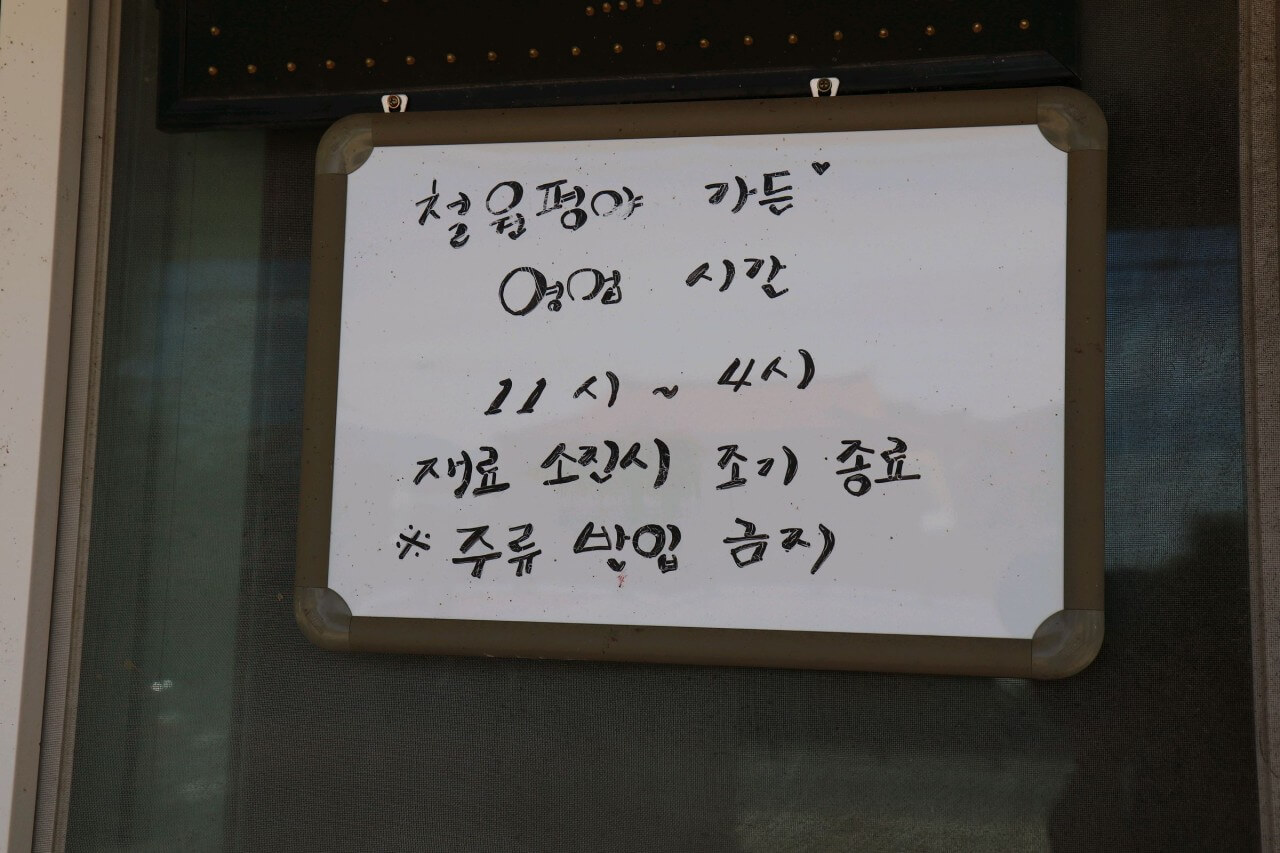 철원평야 가든♥
영업 시간
11시 ~ 4시
재료 소진시 조기 종료
※ 주류 반입 금지